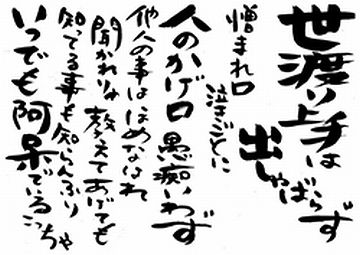 世渡り上手は
出しゃばらず
憎まれ口
泣きごとに
人のかげ口 愚痴いわず
他人の事はほめなはれ
聞かれりゃ教えてあげても
知ってる事も知らんふり
いつでも阿呆でいるこっちゃ